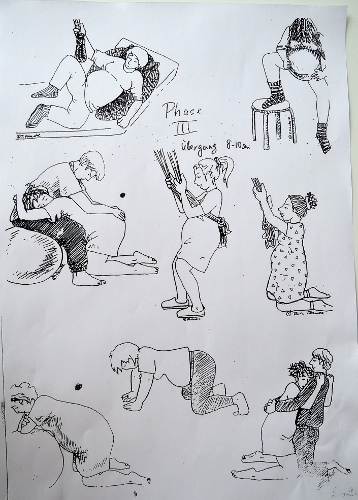 Phase
III
Übergang 8-10cm